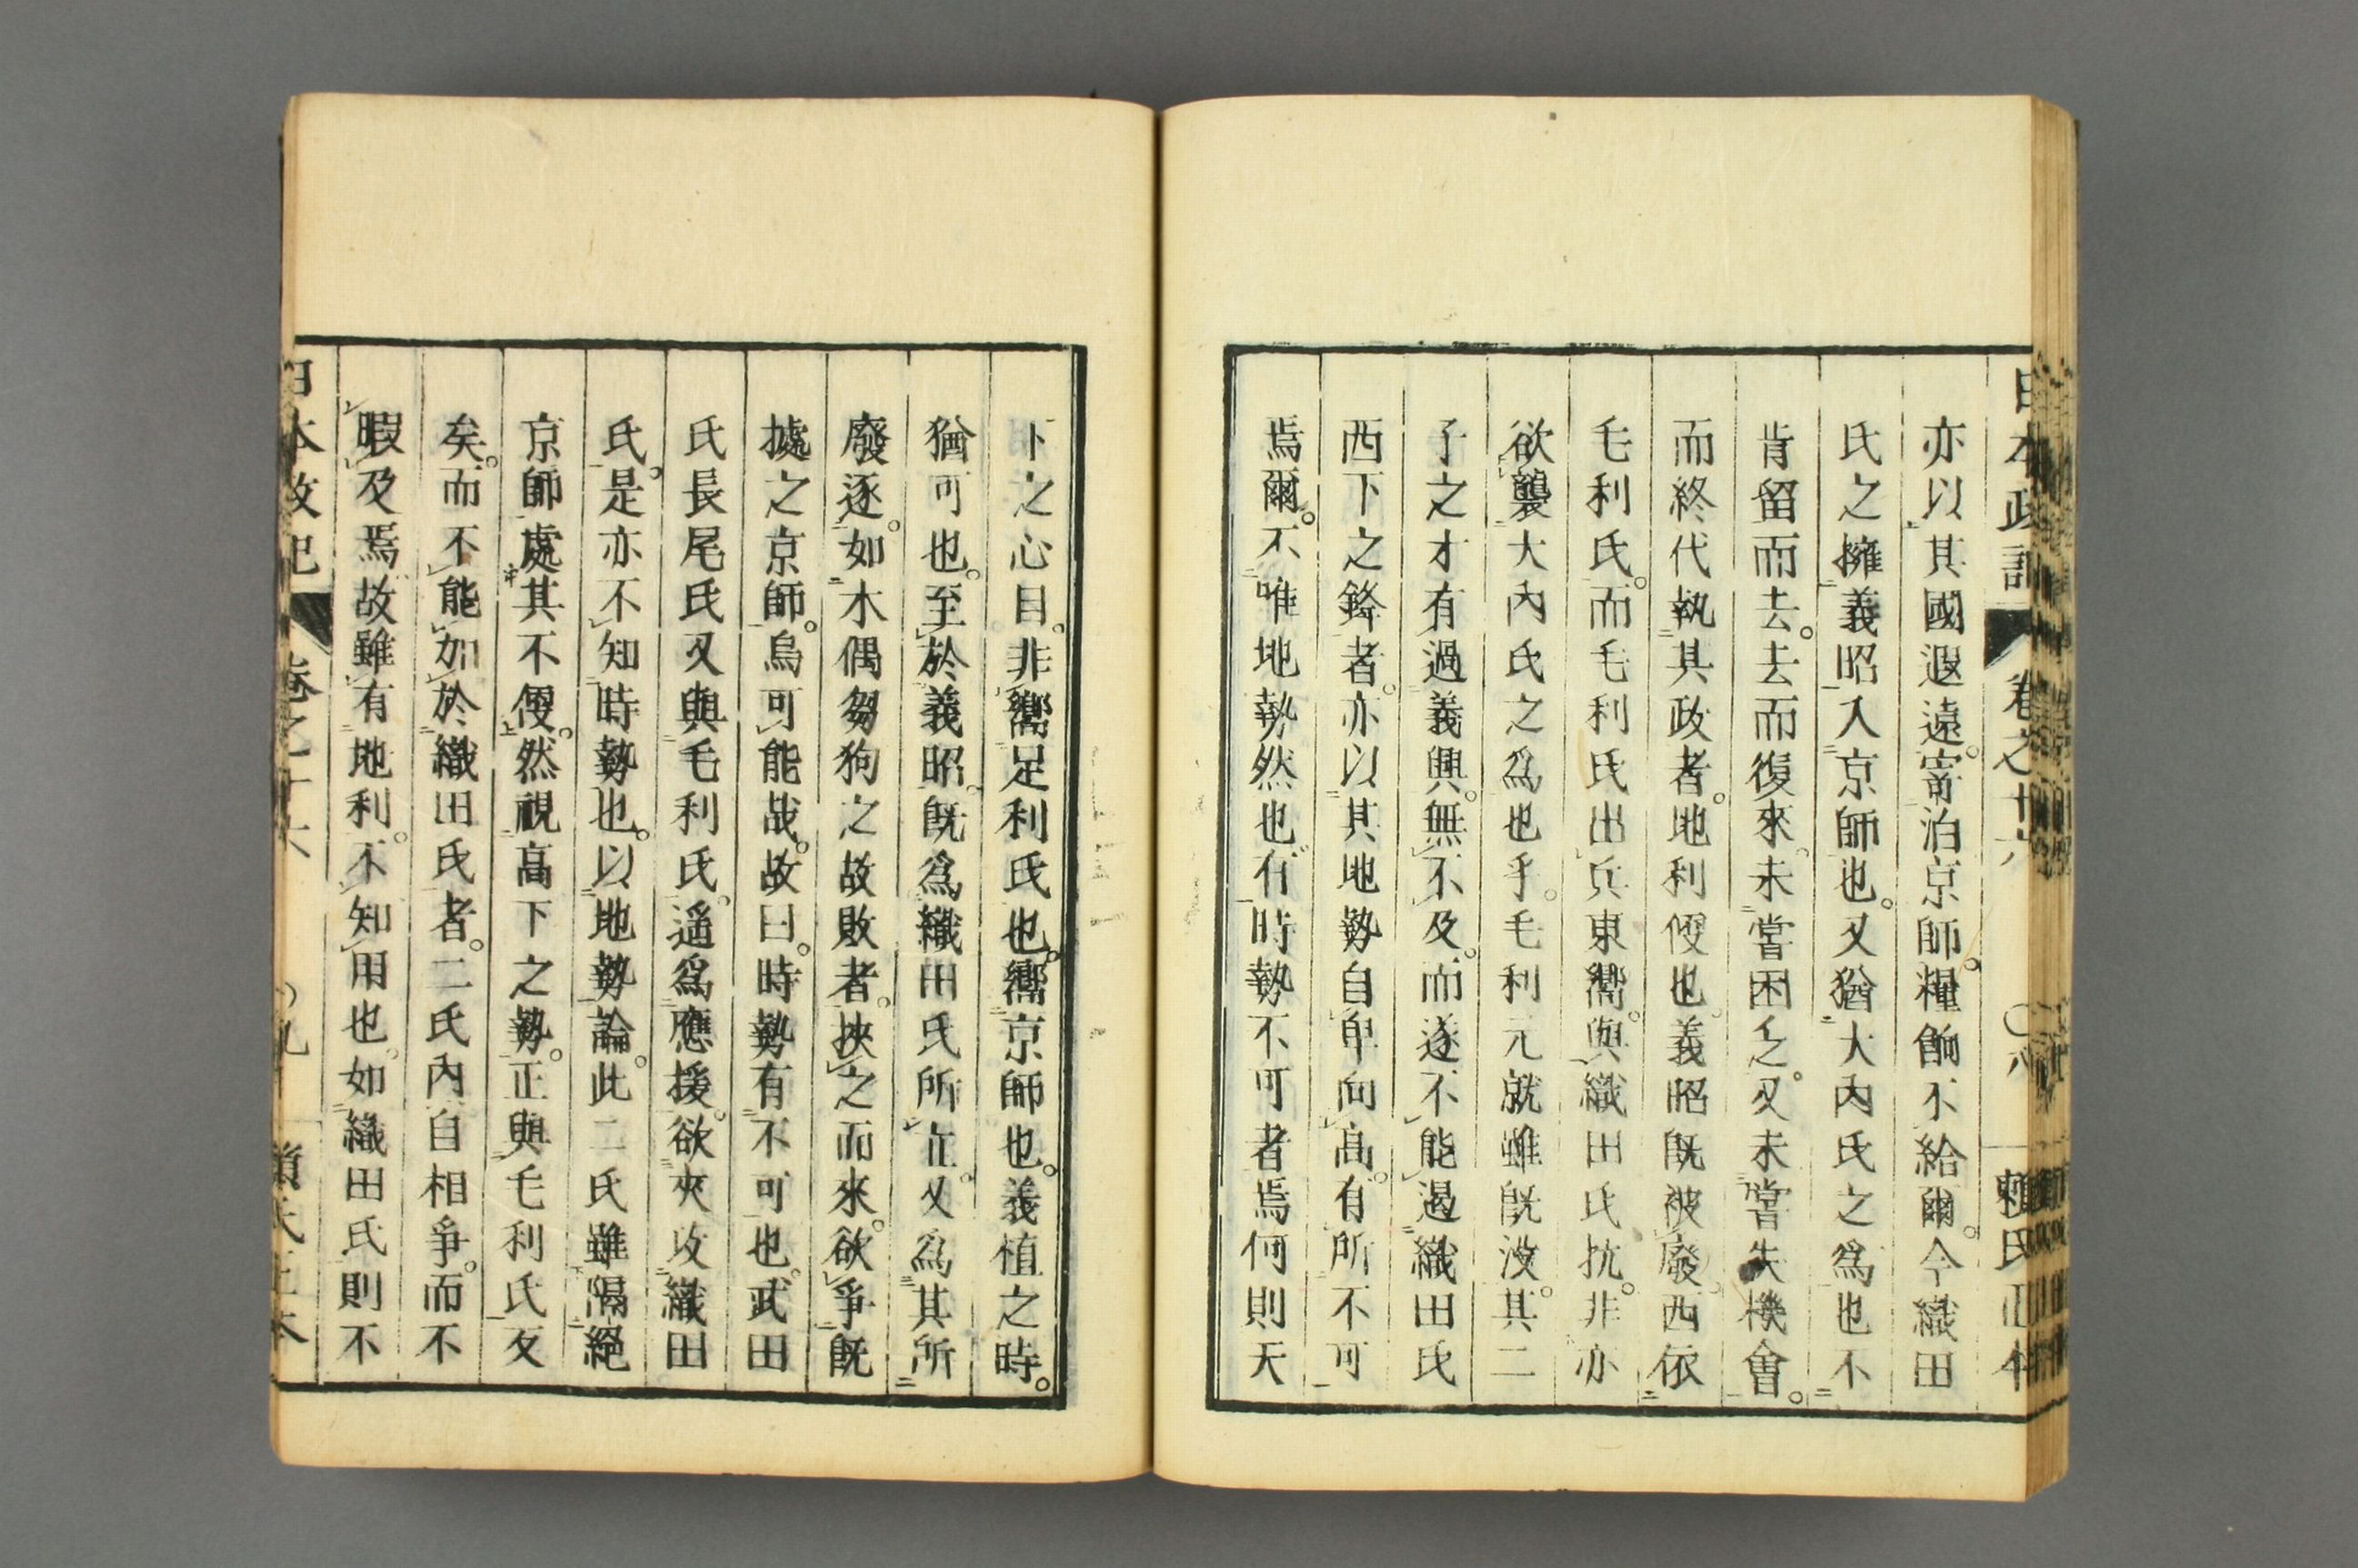 日本政記 卷之十六 〇八 賴氏正本
亦以其國遐遠。寄泊京師。糧餉不給爾。今織田
氏之擁義昭入京師也。又猶大內氏之爲也不
肯留而去。去而復來。未嘗困乏。又未嘗失機會。
而終代執其政者。地利便也。義昭既被廢。西依
毛利氏。而毛利氏出兵東嚮。與織田氏抗。非亦
欲襲大內氏之爲也乎。毛利元就雖既沒。其二
子之才有過義興。無不及。而遂不能遏織田氏
西下之鋒者。亦以其地勢自卑向高。有所不可
焉爾。不唯地勢然也。有時勢不可者焉何則天
下之心目。非嚮足利氏也。嚮京師也。義植之時。
猶可也。至於義昭。既爲織田氏所立。又爲其所
廢逐。如木偶芻狗之故敗者。挾之而來。欲爭既
據之京師。烏可能哉。故曰。時勢有不可也。武田
氏長尾氏又與毛利氏。遥爲應援。欲夾攻織田
氏。是亦不知時勢也。以地勢論。此二氏雖隔絕
京師。處其不便。然視高下之勢。正與毛利氏反
矣。而不能加於織田氏者。二氏內自相爭。而不
暇及焉。故雖有地利。不知用也。如織田氏則不
日本政記 卷之十六 〇九 賴氏正本